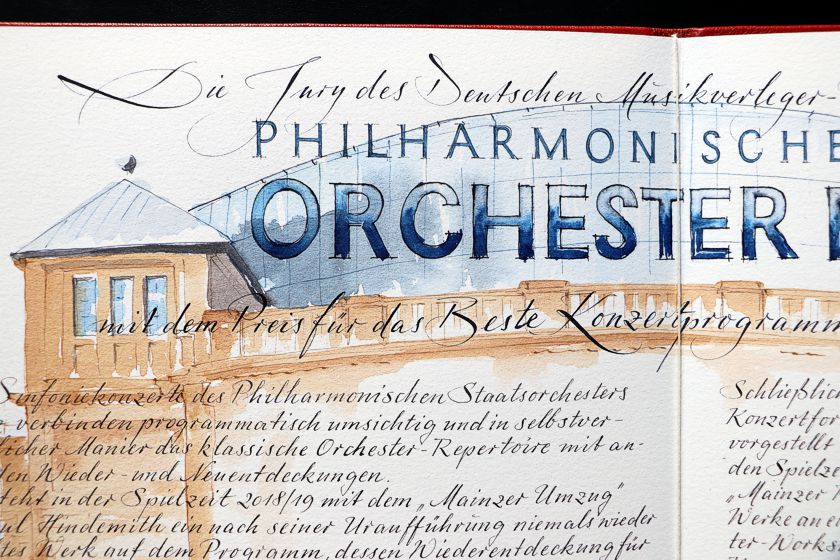 Die Jury des Deutschen Musikverleger-
PHILHARMONISCHE
ORCHESTER
mit dem Preis für das Beste Konzertprogramm
Sinfoniekonzerte des Philharmonischen Staatsorchesters
verbinden programmatisch umsichtig und in selbstver-
licher Manier das klassische Orchester-Repertoire mit an-
den Wieder- und Neuentdeckungen.
teht in der Spielzeit 2018/19 mit dem „Mainzer Umzug"
ul Hindemith ein nach seiner Uraufführung niemals wieder
tes Werk auf dem Programm, dessen Wiederentdeckung für
Schließlic
Konzertfor
vorgestellt
den Spielze
„Mainzer
Werke an e
ter-Works